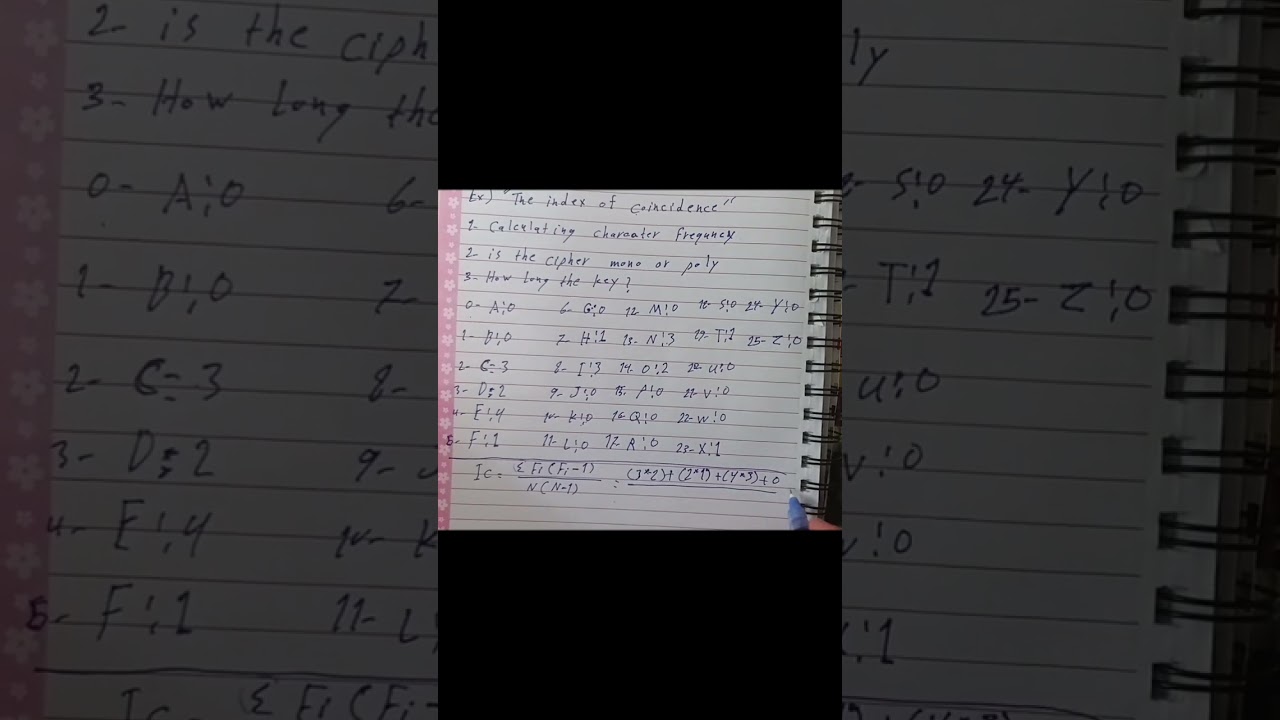 Ex) "The index of Coincidence"
1- Calculating charcater frequncy
2- is the cipher mono or poly
3- How long the key?
0- A:0 6- G:0 12- M:0 18- S:0 24- Y:0
1- B:0 7- H:1 13- N:3 19- T:1 25- Z:0
2- C=3 8- I:3 14- O:2 20- U:0
3- D:2 9- J:0 15- P:0 21- V:0
4- E:4 10- K:0 16- Q:0 22- W:0
5- F:1 11- L:0 17- R:0 23- X:1
Ic = Σ Fi(Fi-1) / N(N-1) = (3*2)+(2*1)+(4*3)+0